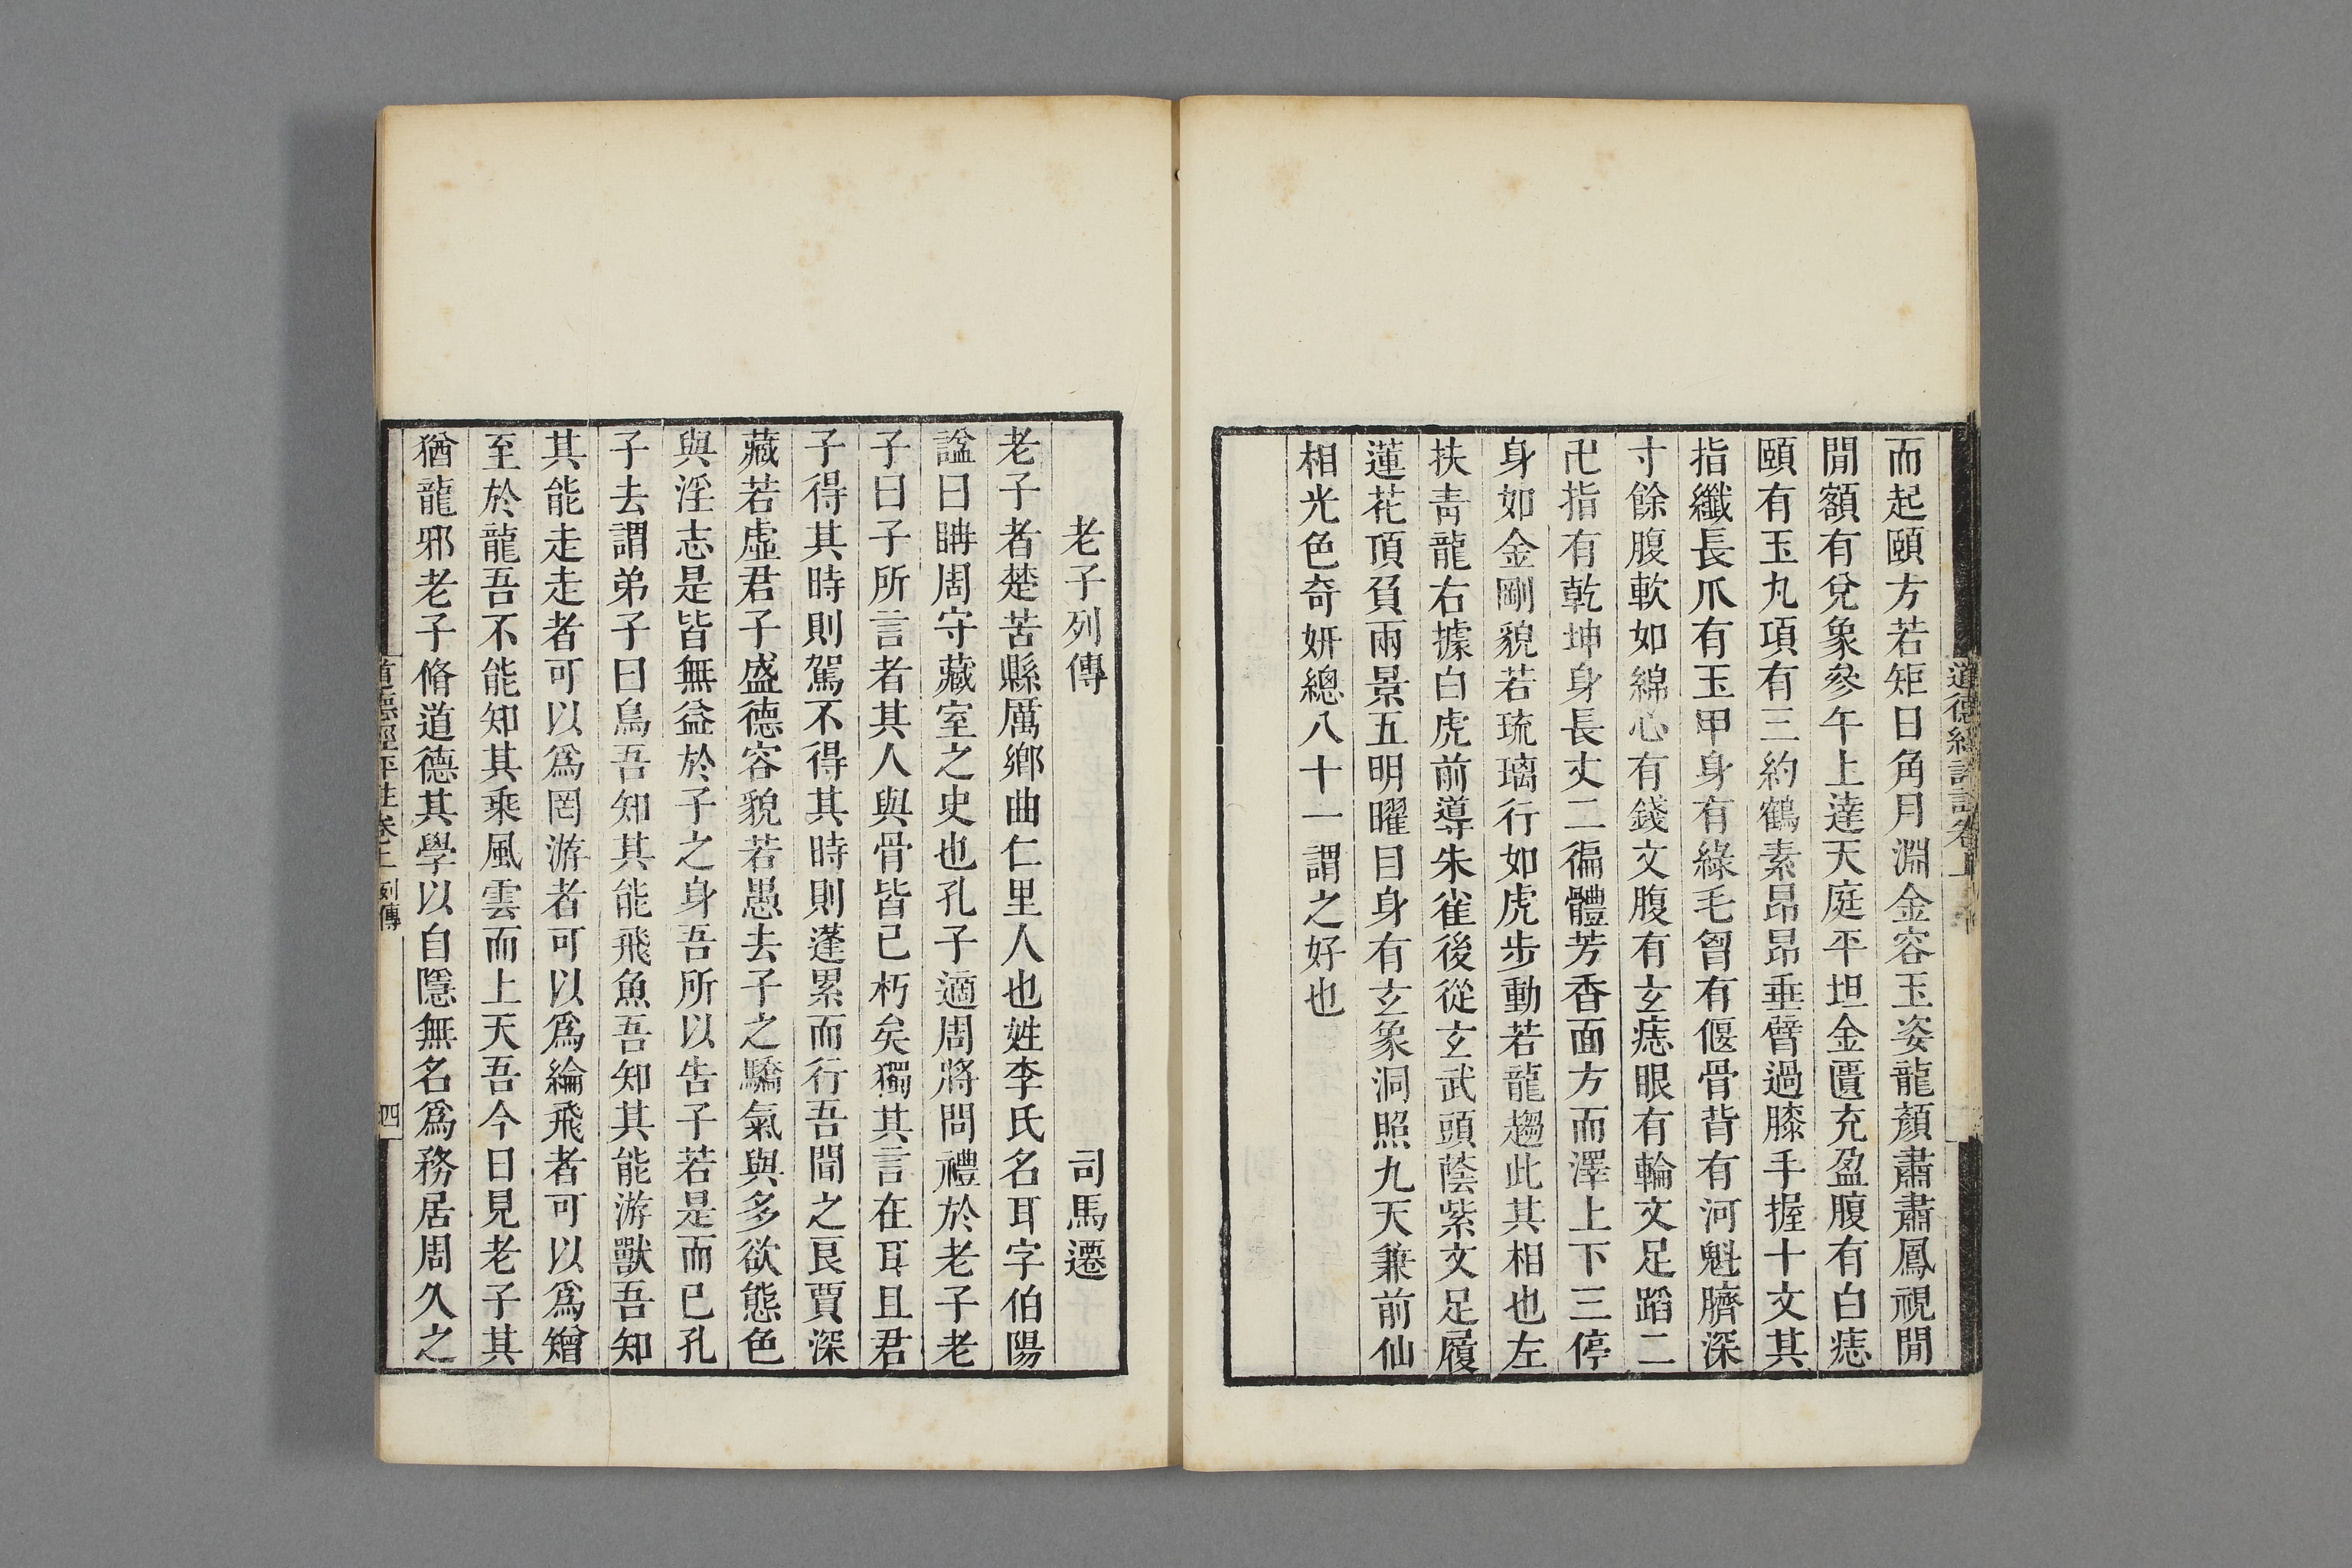 而起頤方若矩日角月淵金容玉姿龍顏肅肅鳳視閒
閒額有兌象參午上達天庭平坦金匱充盈腹有白痣
頤有玉丸項有三約鶴素昂昂垂臂過膝手握十文其
指纖長爪有玉甲身有綠毛曶有偃骨背有河魁臍深
寸餘腹軟如綿心有錢文腹有玄痣眼有輪文足蹈二
卍指有乾坤身長丈二徧體芳香面方而澤上下三停
身如金剛貌若琉璃行如虎步動若龍趨此其相也左
扶靑龍右據白虎前導朱雀後從玄武頭蔭紫文足履
蓮花頂負兩景五明曜目身有玄象洞照九天兼前仙
相光色奇妍總八十一謂之好也
老子列傳 司馬遷
老子者楚苦縣厲鄉曲仁里人也姓李氏名耳字伯陽
諡曰耼周守藏室之史也孔子適周將問禮於老子老
子曰子所言者其人與骨皆已朽矣獨其言在耳且君
子得其時則駕不得其時則蓬累而行吾聞之良賈深
藏若虛君子盛德容貌若愚去子之驕氣與多欲態色
與淫志是皆無益於子之身吾所以告子若是而已孔
子去謂弟子曰鳥吾知其能飛魚吾知其能游獸吾知
其能走走者可以爲罔游者可以爲綸飛者可以爲矰
至於龍吾不能知其乘風雲而上天吾今日見老子其
猶龍邪老子脩道德其學以自隱無名爲務居周久之
道德經評註卷上 列傳 四